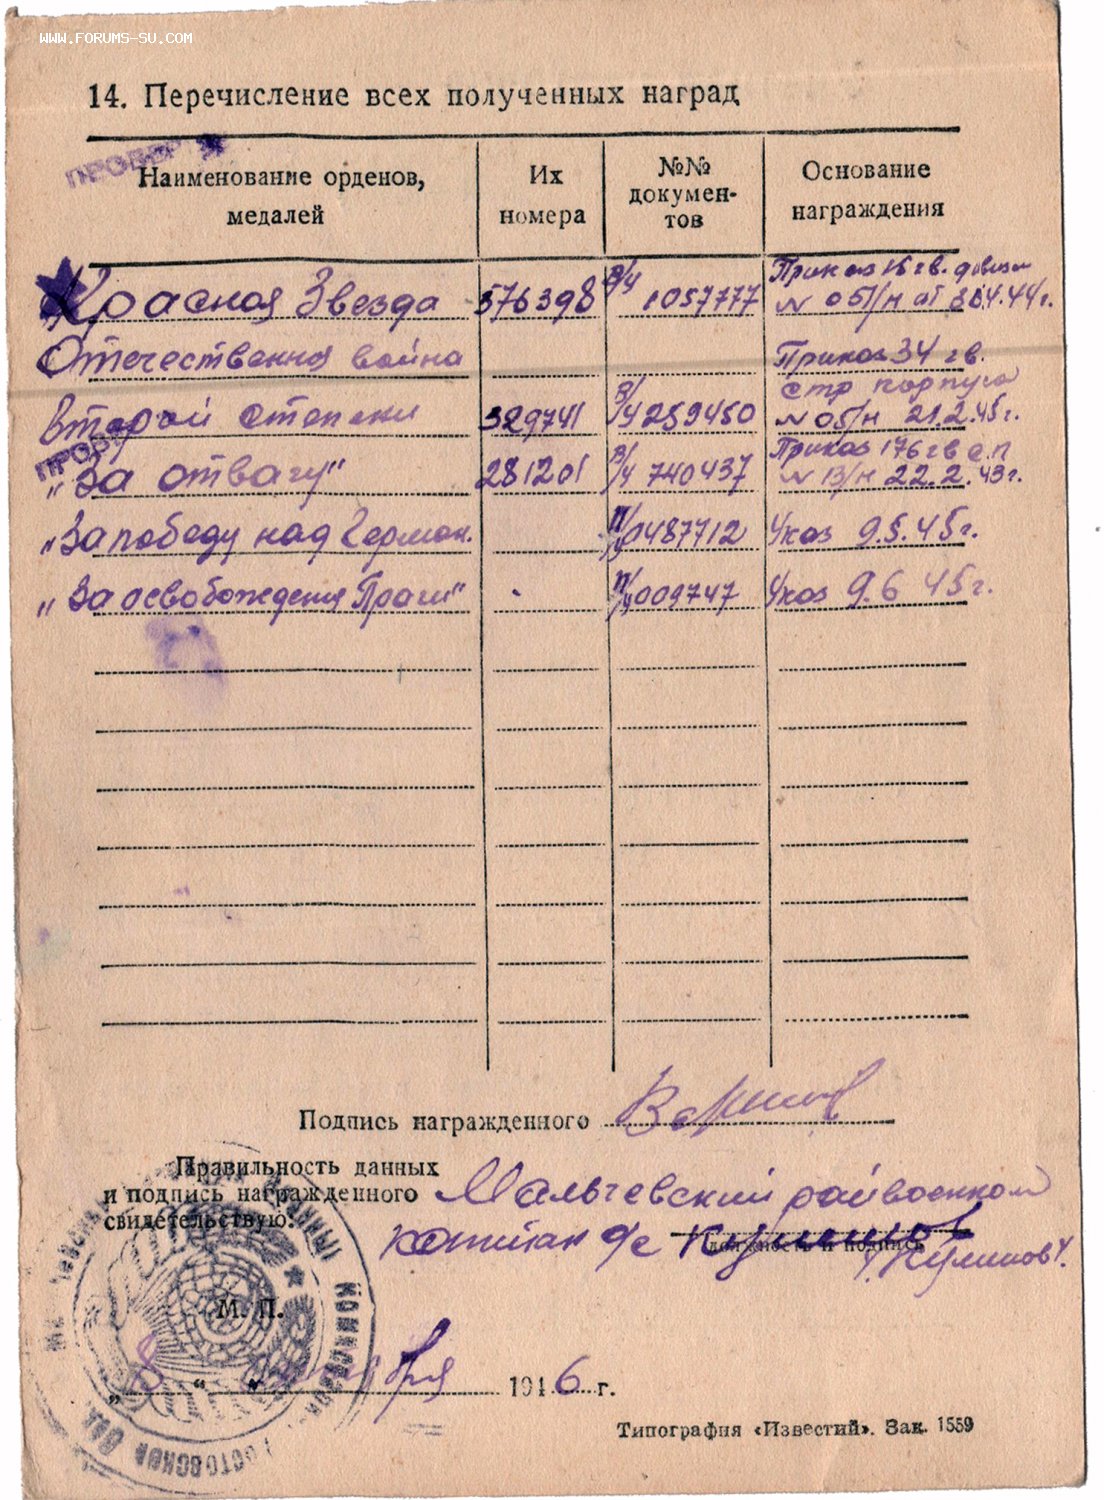 WWW.FORUMS-SU.COM
14. Перечисление всех полученных наград
ПРОВЕР
Наименование орденов, медалей
Их номера
№№ докумен-тов
Основание награждения
Красная Звезда 576398 В/Ч 1057777 Приказ 15 гв. дивизи
№ 05/н от 4.44г.
Отечественная война Приказ 34 гв.
стр корпуса
второй степени 329741 В/Ч 259450 № 05/н 21.2.45г.
ПРОВ
Приказ 176 гв с.п
„За отвагу" 281201 В/Ч 740437 № 13/н 22.2.43г.
„За победу над Герман. 0487712 Указ 9.5.45г.
„За освобождение Праги" 009747 Указ 9.6 45г.
Подпись награжденного
Правильность данных
и подпись награжденного
свидетельствую:
Мальчевский райвоенком
капитан а/с
должность и подпись
Куликов
М. П.
„8" октября 1946 г.
РОСТОВСКОЙ ОБЛ.
Типография «Известий». Зак. 1559